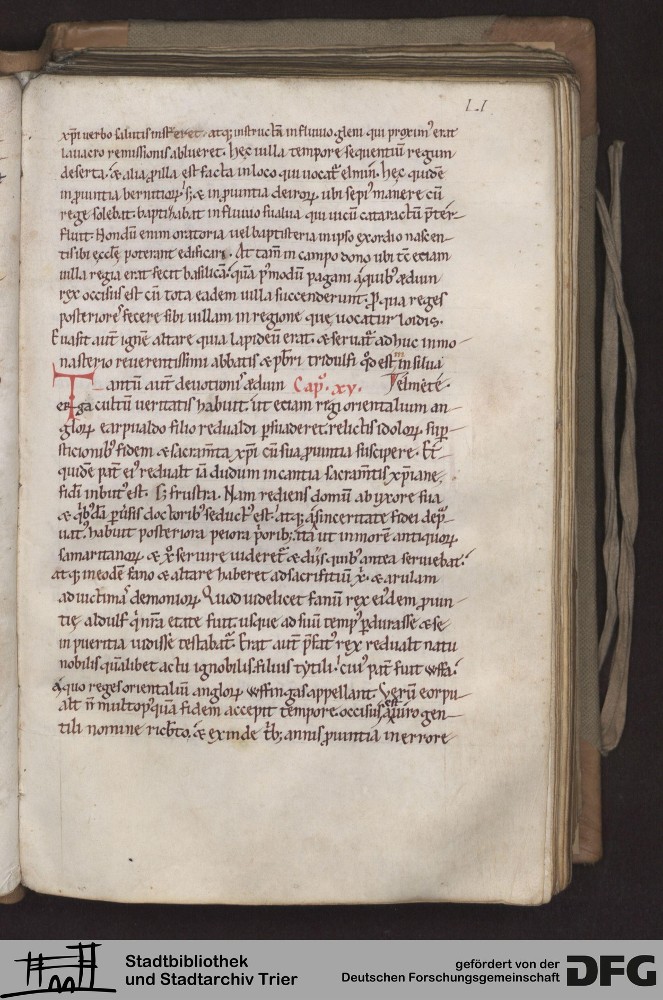 LI
xp̄i uerbo salutis instrueret. atq; instructā in fluuio gleni qui proxim᷒ erat
lauacro remissionis ablueret. hęc uilla tempore sequentiū regum
deserta. & alia ꝓ illa est facta in loco qui uocat᷑ elmin. hęc quidē
in prouintia berniciorꝝ. s; & in prouintia deirorꝝ. ubi sepi᷒ manere cū
rege solebat. baptizabat in fluuio sualua qui uicū cataractū p̄ter-
fluit. Nondū enim oratoria uel baptisteria in ipso exordio nascen-
tis ibi ęcclę poterant edificari. At tam̄ in campo dono ubi tc̄ eciam
uilla regia erat fecit basilicā. quā p᷒modum pagani a quib᷒ ęduin
rex occisus est cū tota eadem uilla succenderunt. ꝓ qua reges
posteriores fecere sibi uillam in regione que uocatur loidis.
Euasit aut̄ ignē altare quia lapideū erat. & seruat᷑ adhuc in mo-
nasterio reuerentissimi abbatis & pbr̄i tridulfi. qd̄ est in silua
Tantū aut̄ deuotionis ęduin Cap. xv. elmete.
erga cultū ueritatis habuit. ut eciam regi orientalium an-
glorꝝ earpualdo filio redualdi ꝑsuaderet. relictis idolorꝝ sup̄-
sticionib᷒ fidem & sacram̄ta xp̄i cū sua prouintia suscipere. Et
quidē pat̄ ei᷒ redualt iā dudum in cantia sacram̄tis xp̄iane
fidei inbut᷒ est. s; frustra. Nam rediens domū ab uxore sua
& q̇b᷒dā ꝑuersis doctorib᷒ seduct᷒ est. atq; a sinceritate fidei dep̄-
uat᷒. habuit posteriora peiora priorib᷒. ita ut in more antiquorꝝ
samaritanorꝝ & xp̄o seruire uideret᷑ & diis quib᷒ antea seruiebat.
atq; in eodē fano & altare haberet ad sacrifitiū xp̄i. & arulam
ad uictimas demoniorꝝ. Quod uidelicet fanū rex ei᷒dem prouin-
tię aldulf qui nr̄a etate fuit. usque ad suū temp᷒ ꝑdurasse & se
in pueritia uidisse testabat᷑. Erat aut̄ p̄fat᷒ rex redualt natu
nobilis quālibet actu ignobilis. filius tytili. cui᷒ pat̄ fuit uffa.
a quo reges orientaliū anglorꝝ uffingas appellant. Verū eorpu-
alt n̄ multo p᷒quā fidem accepit tempore. occisus est a uiro gen-
tili nomine ricb̄to. & exinde trib; annis prouintia in errore
Stadtbibliothek
und Stadtarchiv Trier
gefördert von der
Deutschen Forschungsgemeinschaft
DFG